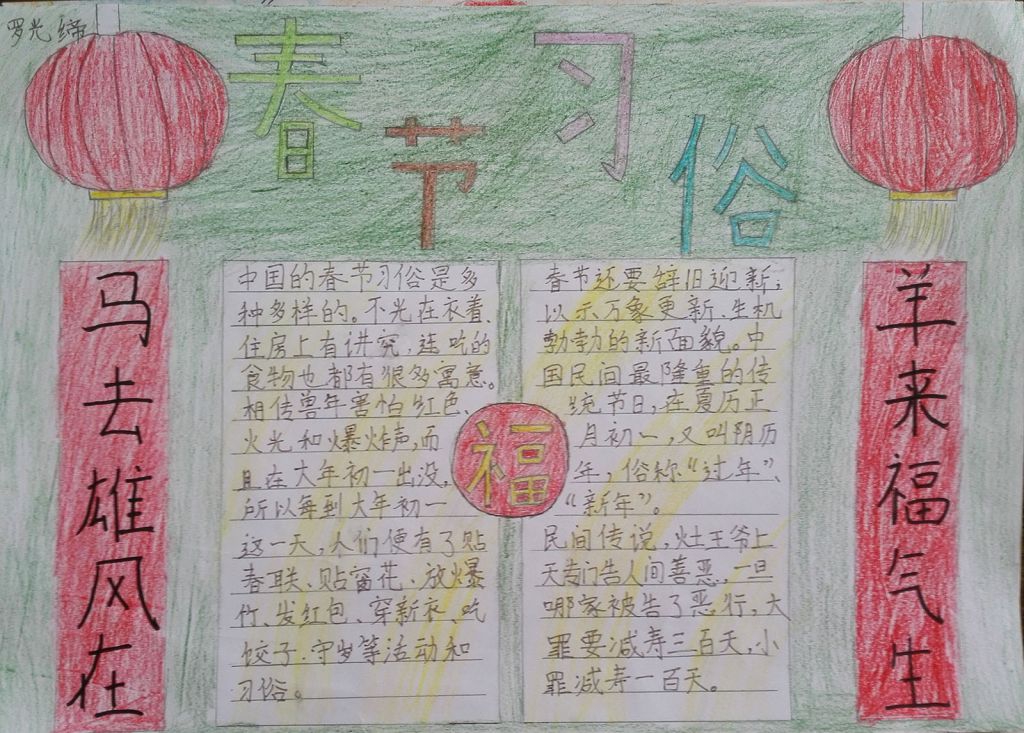 罗光缔
春节习俗
马去雄风在
中国的春节习俗是多
种多样的。不光在衣着、
住房上有讲究，连吃的
食物也都有很多寓意。
相传兽年害怕红色、
火光和爆炸声，而
且在大年初一出没，
所以每到大年初一
这一天，人们便有了贴
春联、贴窗花、放爆
竹、发红包、穿新衣、吃
饺子、守岁等活动和
习俗。
福
春节还要辞旧迎新；
以示万象更新、生机
勃勃的新面貌。中
国民间最隆重的传
统节日，在夏历正
月初一，又叫阴历
年，俗称“过年”、
“新年”。
民间传说，灶王爷上
天专门告人间善恶，一旦
哪家被告了恶行，大
罪要减寿三百天，小
罪减寿一百天。
羊来福气生